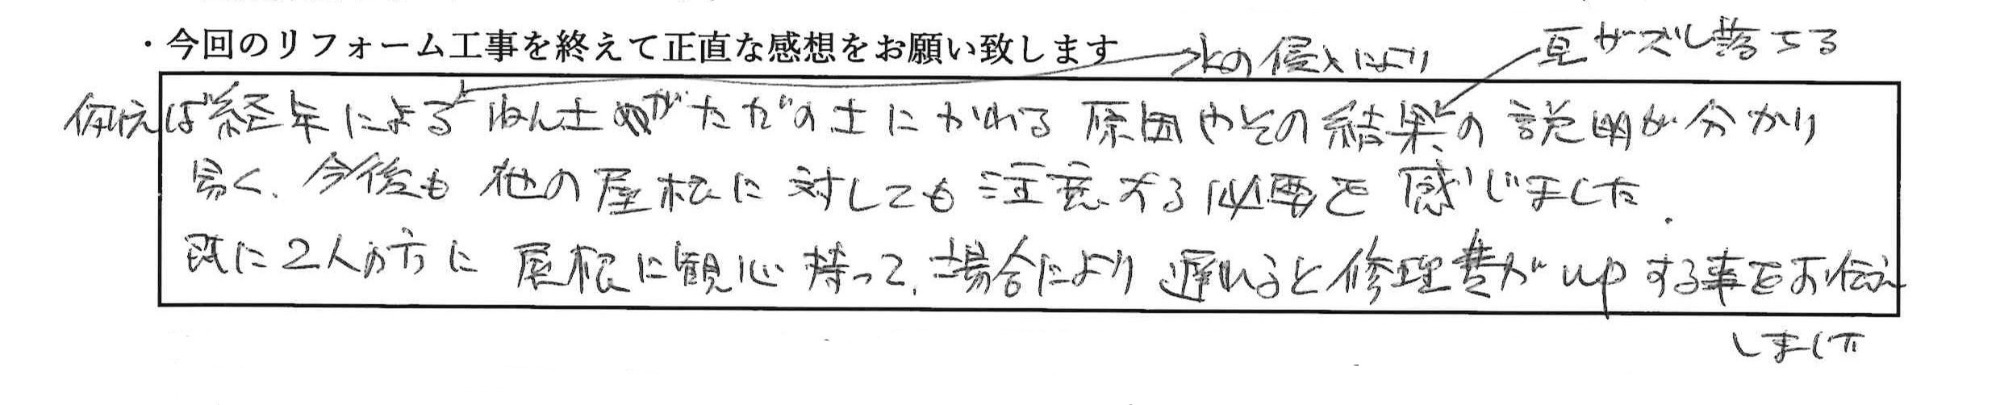 ・今回のリフォーム工事を終えて正直な感想をお願い致します
水の侵入により
瓦がズレ落ちる
例えば経年によるねん土がただの土にかわる原因やその結果の説明が分かり
易く、今後も他の屋根に対しても注意する必要を感じました.
既に2人の方に屋根に観心持って、場合により遅れると修理費がupする事をお伝え
しました